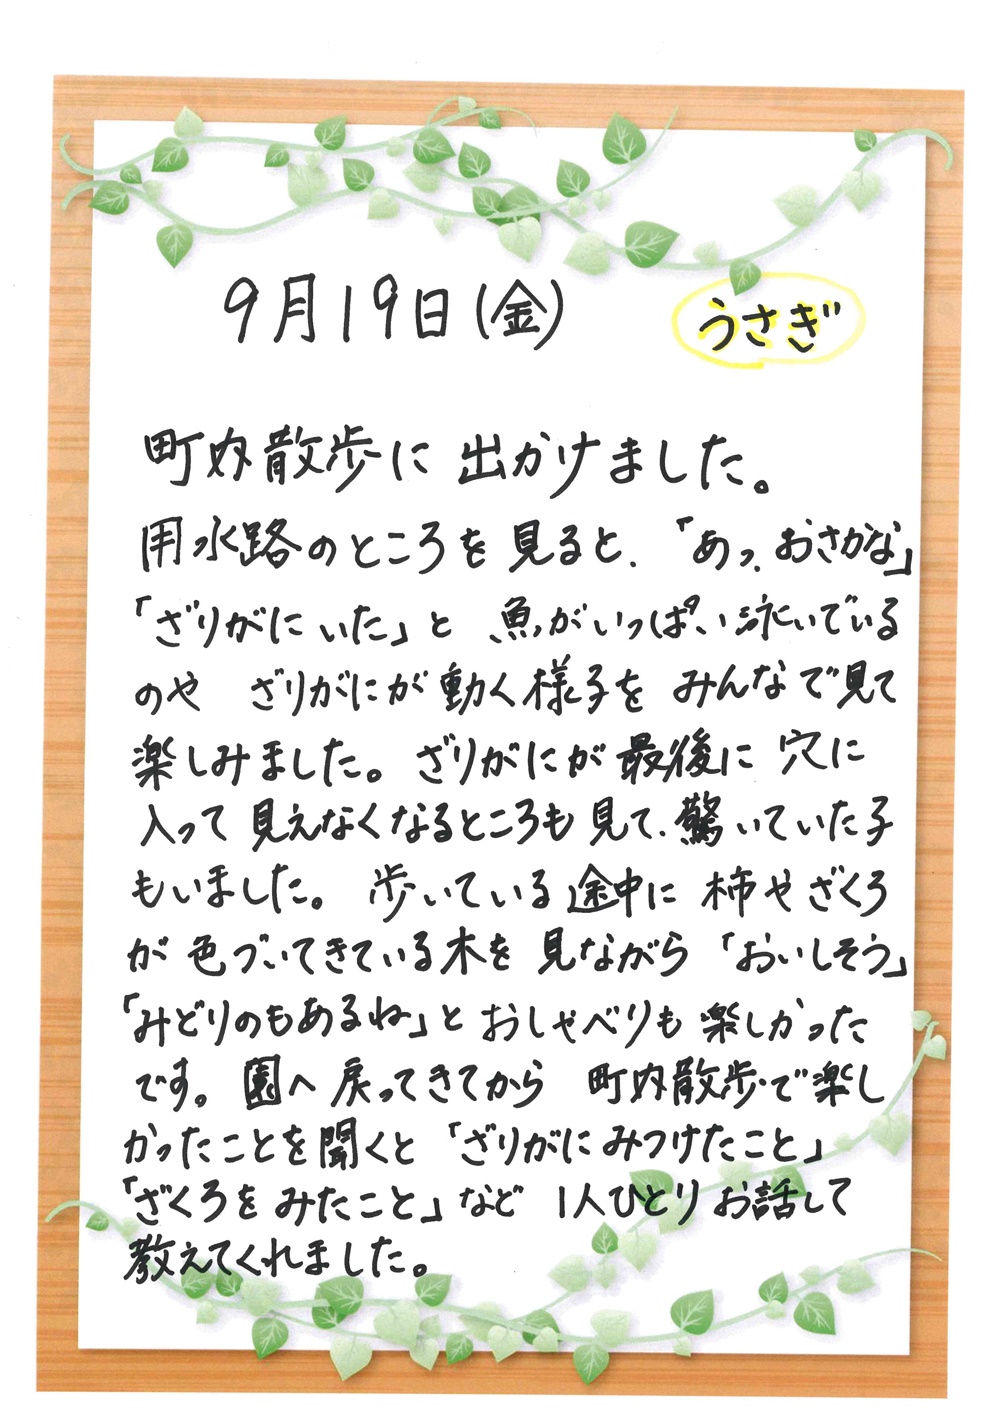 9月19日(金)
うさぎ
町内散歩に出かけました。
用水路のところを見ると、「あっ、おさかな」
「ざりがにいた」と、魚がいっぱい泳いでいる
のや ざりがにが動く様子を みんなで見て
楽しみました。ざりがにが最後に穴に
入って見えなくなるところも見て、驚いていた子
もいました。歩いている途中に柿やざくろ
が色づいてきている木を見ながら「おいしそう」
「みどりのもあるね」とおしゃべりも楽しかった
です。園へ戻ってきてから 町内散歩で楽し
かったことを聞くと「ざりがにみつけたこと」
「ざくろをみたこと」など 1人ひとりお話して
教えてくれました。